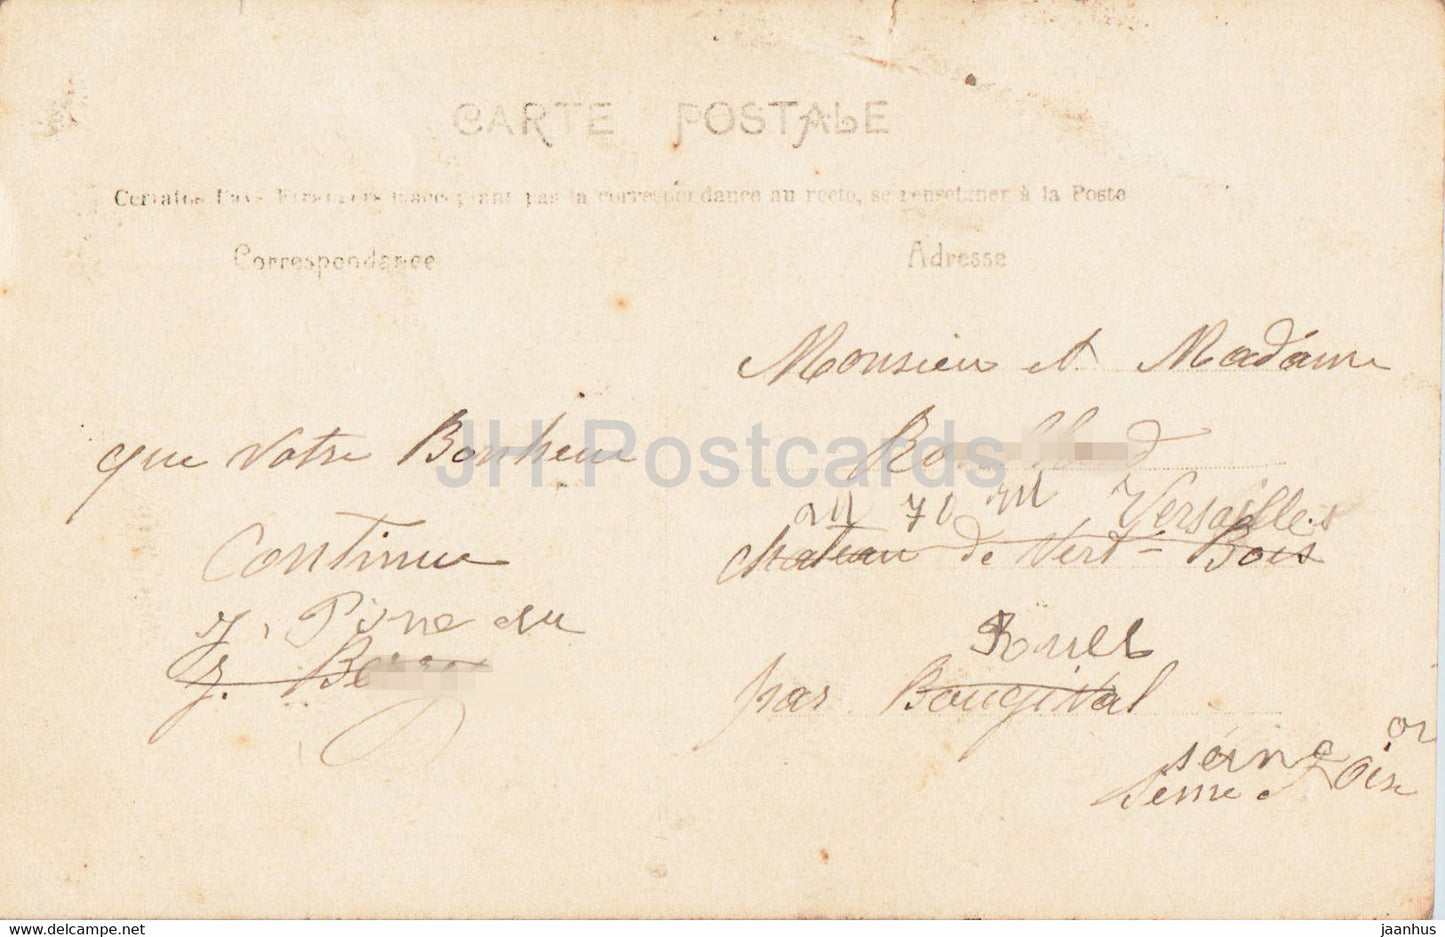 CARTE POSTALE
Certains Pays Etrangers n'acceptant pas la correspondance au recto, se renseigner à la Poste
Correspondance
Adresse
que votre Bonheur
Continue
J.
J.
Monsieur et Madame
70 Versailles
chateau de Vert-Bois
Rueil
par Bougival
seine
Seine & Oise
JH Postcards
www.delcampe.net
jaanhus